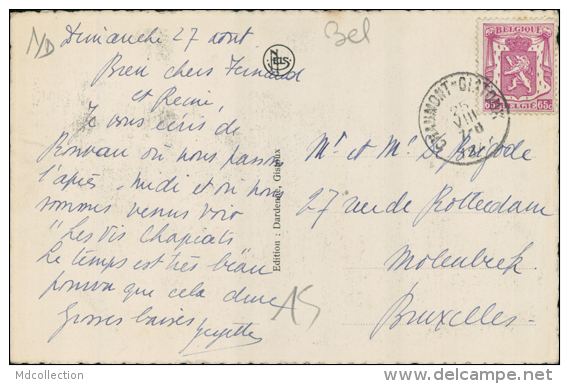 N/D
Bel
Dimanche 27 aout
Bien chers Fernand
et Reine,
Je vous écris de
Ronvau où nous passons
l'après-midi et où nous
sommes venus voir
"Les Dis Chapiats
Le temps est très beau
pourvu que cela dure
Grosses baises
Mr et Me De
27 rue de Rotterdam
Molenbeek
Bruxelles
AS
NELS
Edition : Dardenne, Gistoux
BELGIQUE
65c BELGIE 65c
CHAUMONT-GISTOUX
VIII
Mdcollection
www.delcampe.net